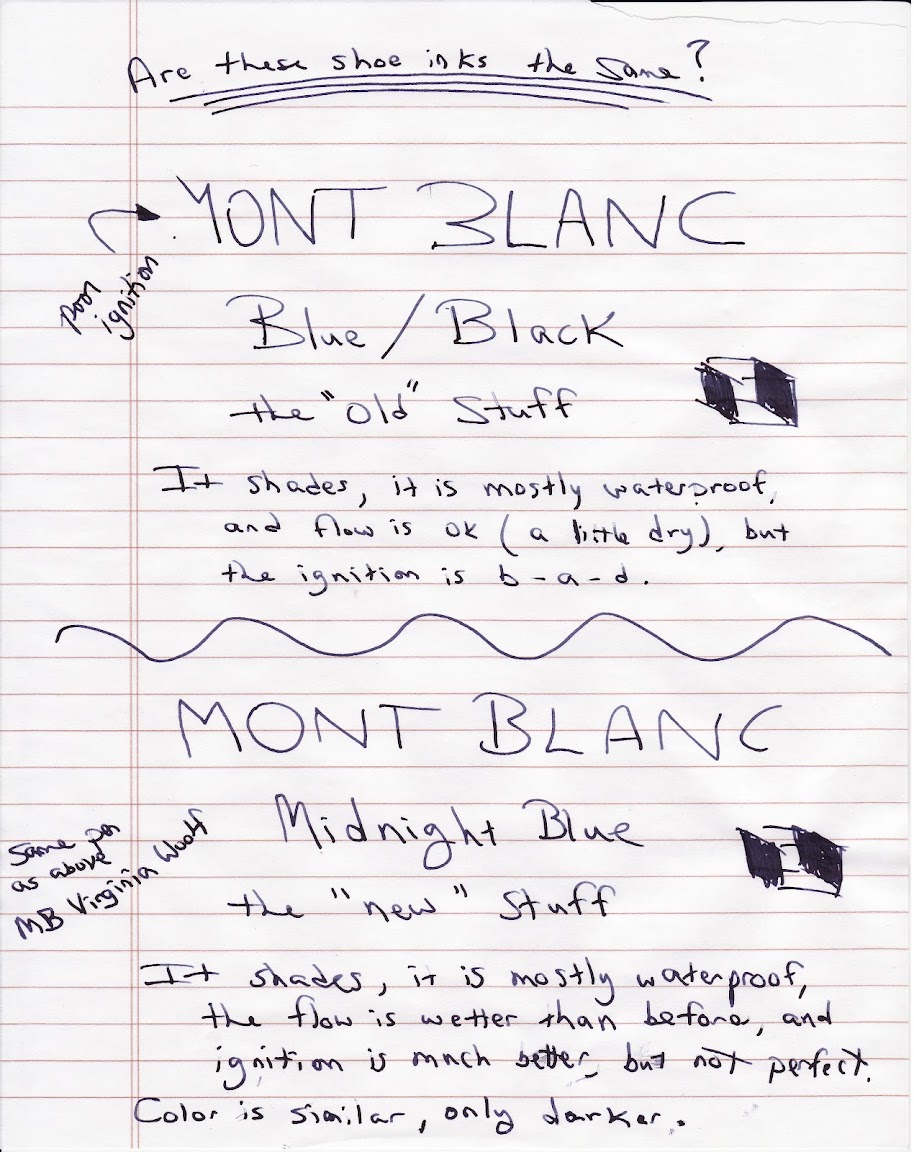 Are these shoe inks the same?
MONT BLANC
poor
ignition
Blue / Black
the "old" stuff
It shades, it is mostly waterproof,
and flow is ok (a little dry), but
the ignition is b-a-d.
MONT BLANC
Midnight Blue
Same pen
as above
MB Virginia Woolf
the "new" stuff
It shades, it is mostly waterproof,
the flow is wetter than before, and
ignition is much better, but not perfect.
Color is similar, only darker.